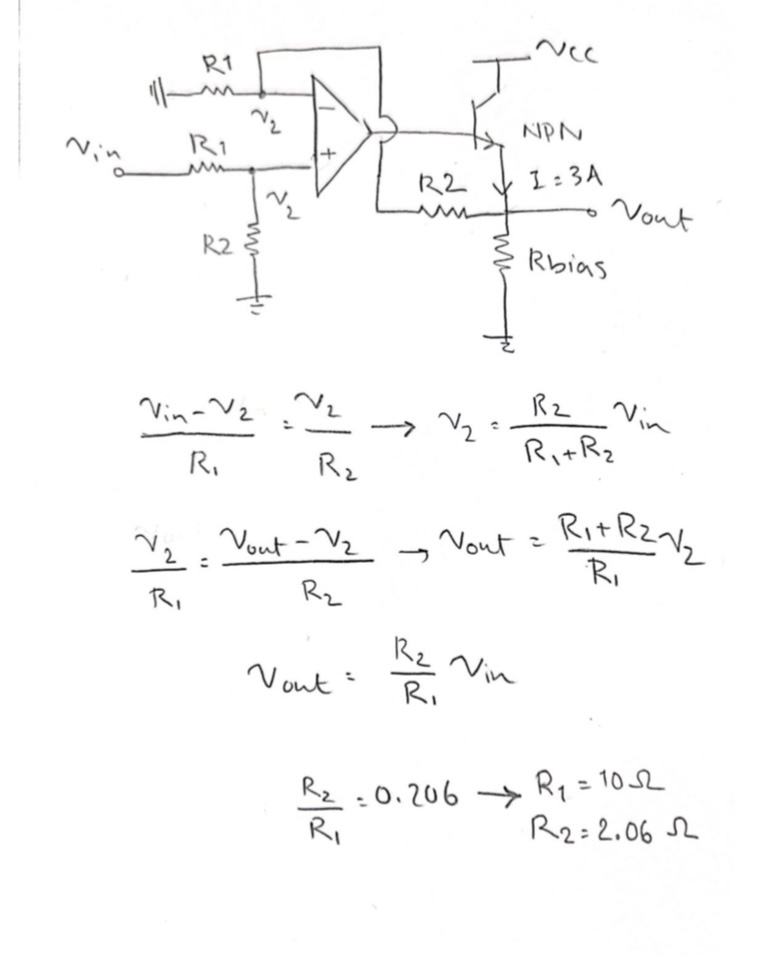 Vcc
R1
V2
-
NPN
Vin
R1
+
I = 3A
R2
V2
Vout
R2
Rbias
(Vin - V2)/R1 = V2/R2 → V2 = R2/(R1+R2) Vin
V2/R1 = (Vout - V2)/R2 → Vout = (R1+R2)/R1 V2
Vout = R2/R1 Vin
R2/R1 = 0.206 → R1 = 10Ω
R2 = 2.06 Ω